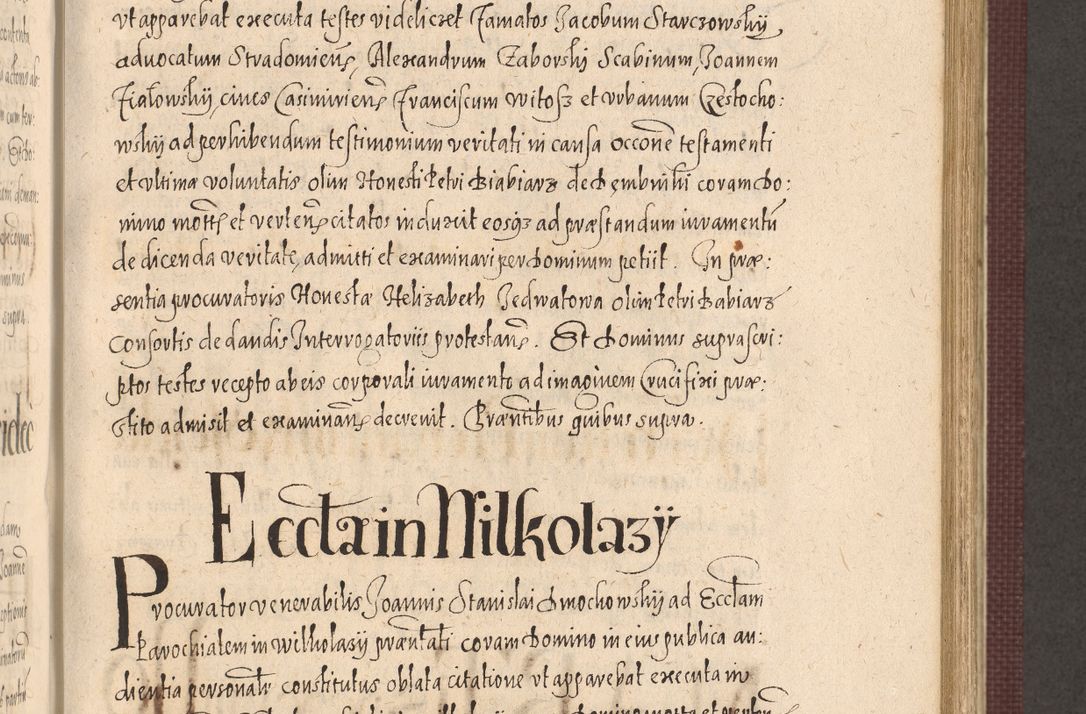 vt apparebat executa testes videliczet Famatos Jacobum Starczowskij
aduocatum Stradomien, Alexandrum Zaborski Scabinum, Joannem
Fiałowskij, ciues Casimirien Franciscum Witosz et vrbanum Częstocho:
wskij ad perhibendum testimonium veritati in causa occone testamenti
et vltimæ voluntatis olim Honesti Petri Biabiarz de Dębniki coram Do:
mino mott et verten citatos induxit eosq ad præstandum iuramentu
de dicenda veritate, admitti et examinari per Dominum petiit. In præ:
sentia procuratoris Honestæ Helizabeth Jedwatowa olim Petri Babiarz
Consortis de dandis Interrogatoriis protestan. Et Dominus suprascri:
ptos testes recepto ab eis corporali iuramento ad imaginem Crucifixi præ:
stito admisit et examinan decreuit. Præntibus quibus supra.
Eccta in Wilkolazÿ
Procurator venerabilis Joannis Stanislai Dmochowskij ad Ecclam
Parochialem in Wilkolazÿ præntati coram Domino in eius publica au:
dientia personalr constitutus oblata citatione vt apparebat executa in